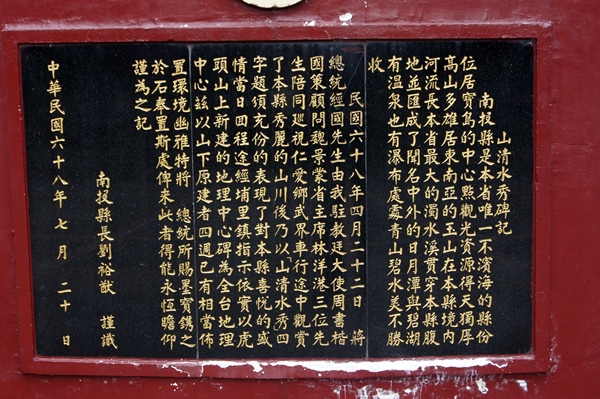 山清水秀碑記
南投縣是本省唯一不濱海的縣份
位居寶島的中心點觀光資源得天獨厚
高山多雄居東南亞的玉山在本縣境內
河流長本省最大的濁水溪貫穿本縣腹
地並匯成了聞名中外的日月潭與碧湖
有溫泉也有瀑布處處青山碧水美不勝
收
民國六十八年四月二十二日 蔣
總統經國先生由我駐教廷大使周書楷
國策顧問魏景蒙省主席林洋港三位先
生陪同巡視仁愛鄉武界車行途中觀賞
了本縣秀麗的山川後乃以「山清水秀」四
字題頒充份的表現了對本縣喜悅的盛
情當日回程途經埔里鎮指示依實以虎
頭山上新建的地理中心碑為全台地理
中心茲以山下原建者四週已有相當佈
置環境幽雅特將 總統所賜墨寶鐫之
於石奉置斯處俾來此者得能永恆瞻仰
謹為之記
南投縣長劉裕猷 謹識
中華民國六十八年七月二十日